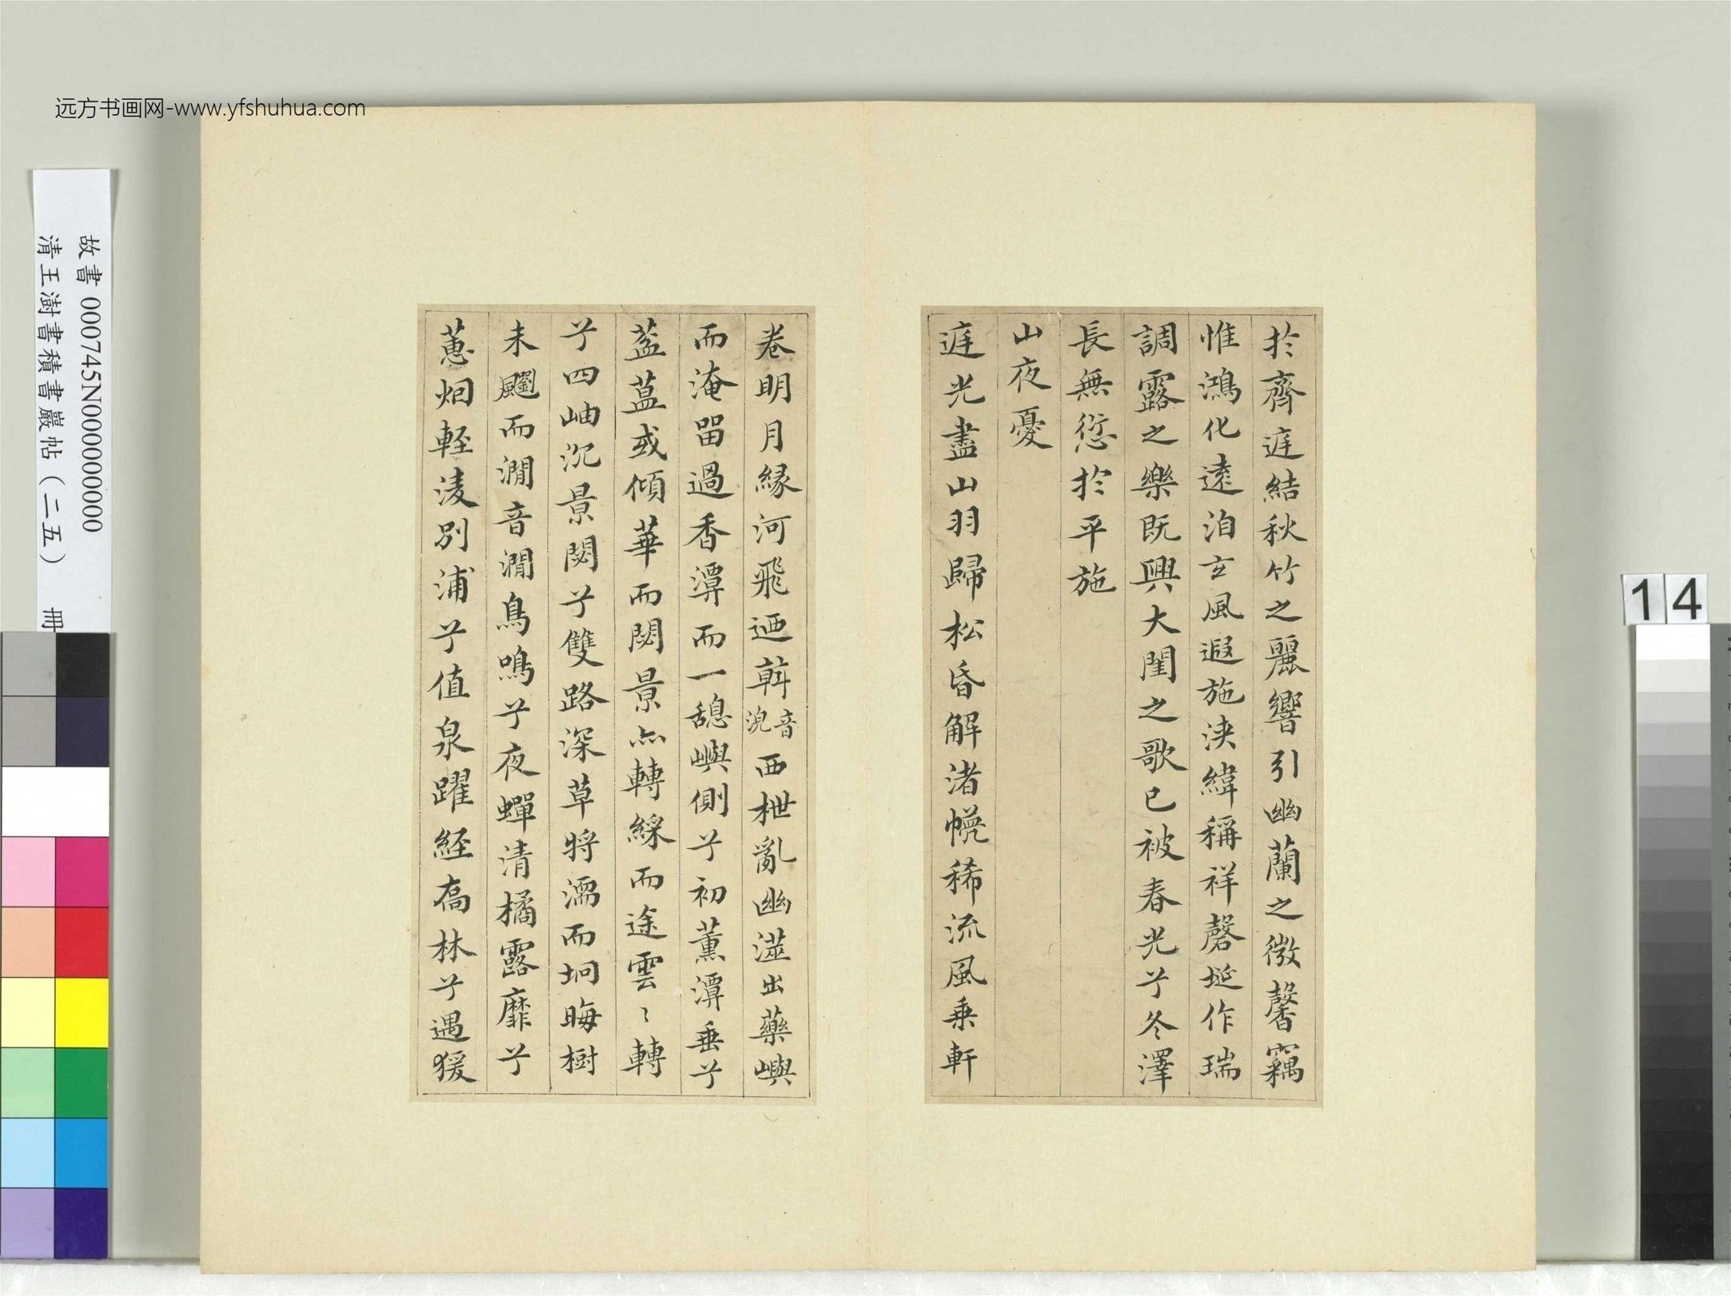 远方书画网-www.yfshuhua.com
故書 000745N000000000
清王澍書積書巖帖(二五) 冊
14
於齊遅結秋竹之麗響引幽蘭之微馨竊
惟鴻化遠洎玄風遐施浹緯稱祥磬埏作瑞
調露之樂既興大閨之歌已被春光兮冬澤
長無愆於平施
山夜憂
遅光盡山羽歸松昏解渚幌稀流風乗軒
卷明月緣河飛迺斡音 西枻亂幽澨出藥嶼
而淹留過香潭而一憩嶼側兮初薰潭垂兮
葢葢或傾華而閟景亦轉綵而途雲〻轉
兮四岫沉景閟兮雙路深草將濡而坰晦樹
未飀而澗音澗鳥鳴兮夜蟬清橘露靡兮
蕙烟軽淩別浦兮值泉躍経喬林兮遇猨